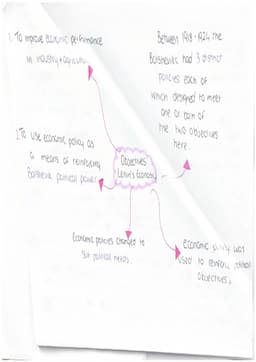 1. To improve economic performance
in industry + agriculture
2. To use economic policy as
a means of reinforcing
Bolshevik political power
Objectives
Lenin's Economy
Between 1918-1924 the
Bolsheviks had 3 distinct
policies each of
which designed to meet
one or both of
the two objectives
here.
Economic policies changed to
suit political needs.
economic policy was
used to reinforce political
objectives.